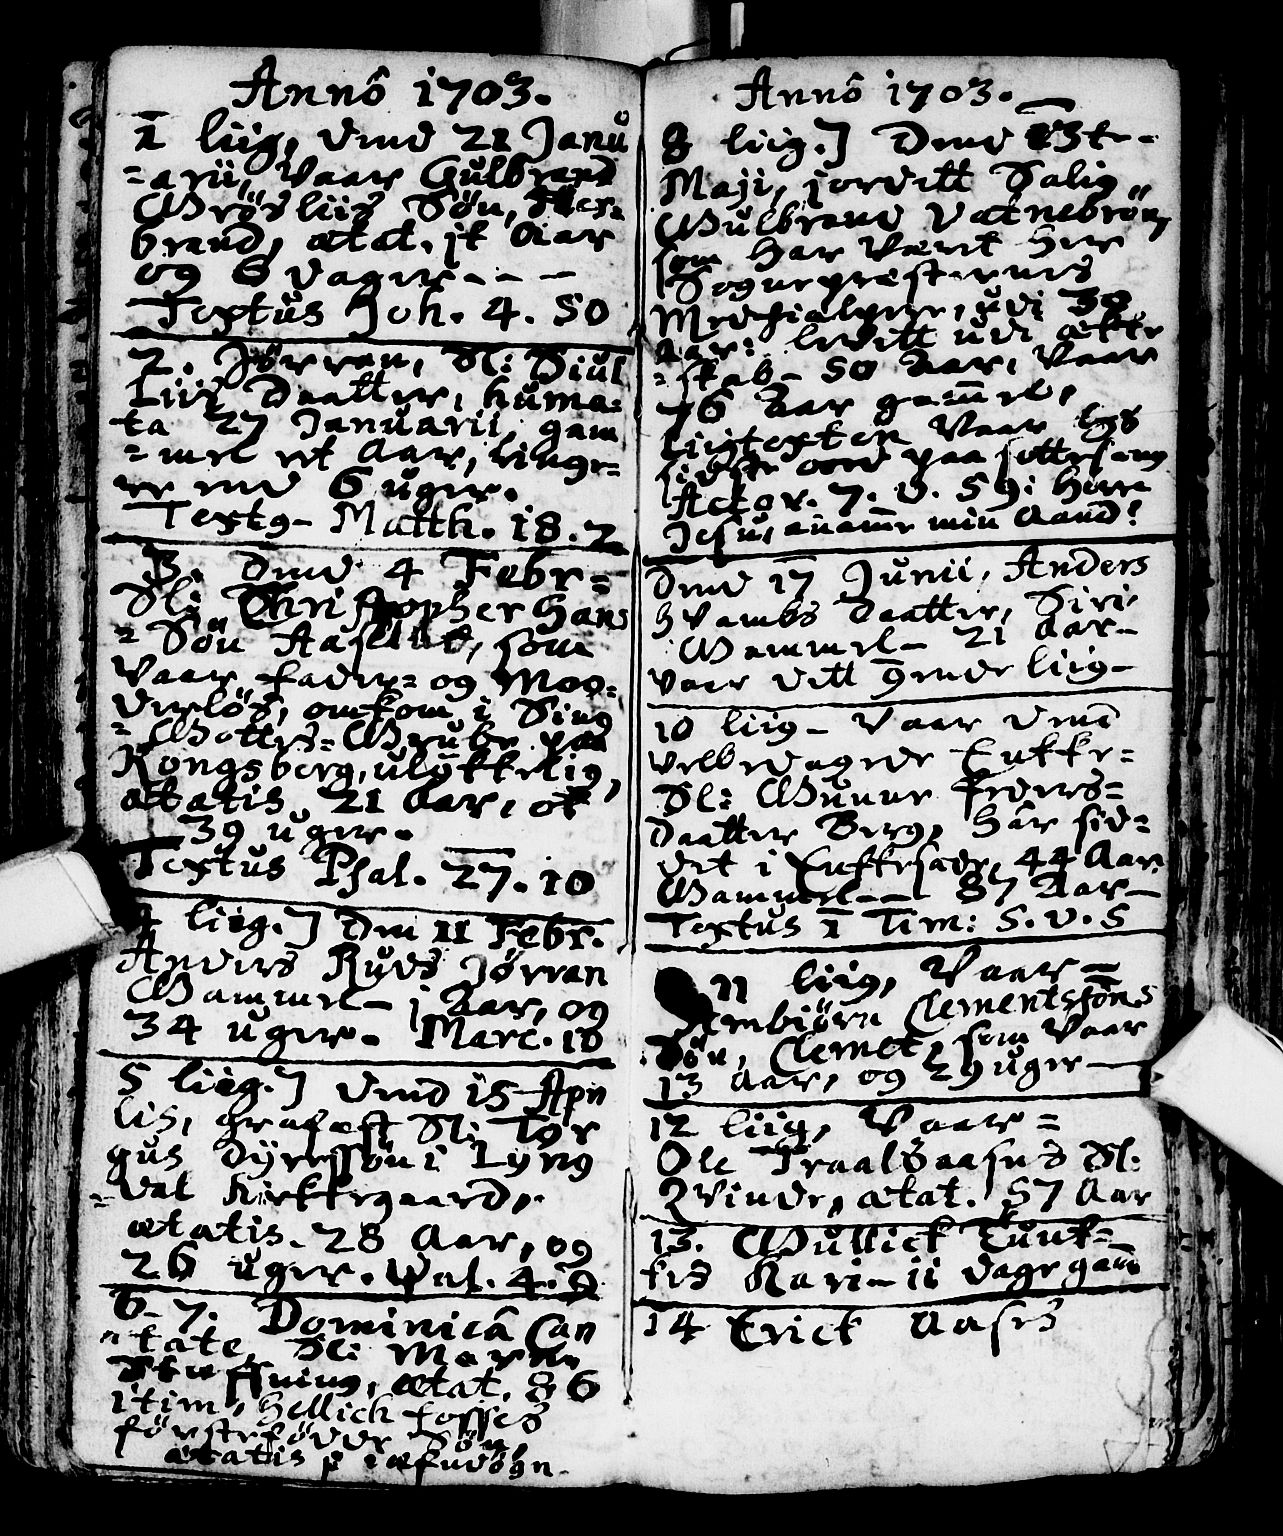 Annô 1703.
1 liig, dend 21 Janu
=arii, Vaar Gulbrand
Grösliis Sön, Her=
brand, ætat. jt Aar
og 6 dager - - -
Textus Joh. 4. 50
2. Jörran, Sl: Siul
Liis Daatter, huma=
ta 27 Januarii, gam
=mel et Aar, ringe=
re end 6 uger.
Text9 - Matth. 18. 2
3. dend 4 Febr=
Sl: Christopher Hans
=Sön Aaslud, som
Vaar fader= og Moo=
derlös, omkom i Sing
=Gotters=Grube paa
Kongsberg, ulykkelig,
ætatis. 21 Aar, ok
39 uger.
Textus Psal. 27. 10
4 liig.] Den 11 Febr.
Anders Ruds Jörran
Gammel - j Aar, og
34 uger. Marc. 10
5 liig.] dend 15 Apri
lis, grafæst Sl: Tor
gus Dyressön i Lyng
=dal kirkegaard,
ætatis. 28 Aar, og
26 uger. Psal. 4. 9
6. 7. Dominicâ Can
=tate, Sl: Marthe
ætat. 86
item, Hellick Fosses
förstefödde Sön,
ætatis
Annô 1703.
8 liig.] Dend 13te-
Maji, jordett Salig
Gulbrand Vatnebrön,
som har Værit her
Sognepræsternes
Medhielper, udi 30
aar: levett udi ækte
=skab - 50 Aar, Vaar
76 Aar gam̄el,
Liigtexten Vaar hs
sidste oord paa sottesæng
Actor. 7. v. 59: Herre
Jesu, anam̄e min Aand!
Dend 17 Junii, Anders
hvambs Daatter, Siri,
Gammel - 21 Aar -
vaar dett 9ende liig -
10 liig - Vaar dend
velbedagede Enkke=
Sl: Gunur Peders=
Daatter Berg, har sid=
det i Enkkesæde, 44 Aar,
Gammel - - 87 Aar -
Textus 1 Tim: 5. v. 5
11 liig, Vaar =
Embiörn Clementsföns
Sön, Clemet, som Vaar
13 Aar, og 29 uger -
12 liig, Vaar =
Ole Traalsaasns Sl:
Qvinde, ætat. 57 Aar
13. Gullick Tunt=
Kari - 11 dage gam̄
14 Erick Aases